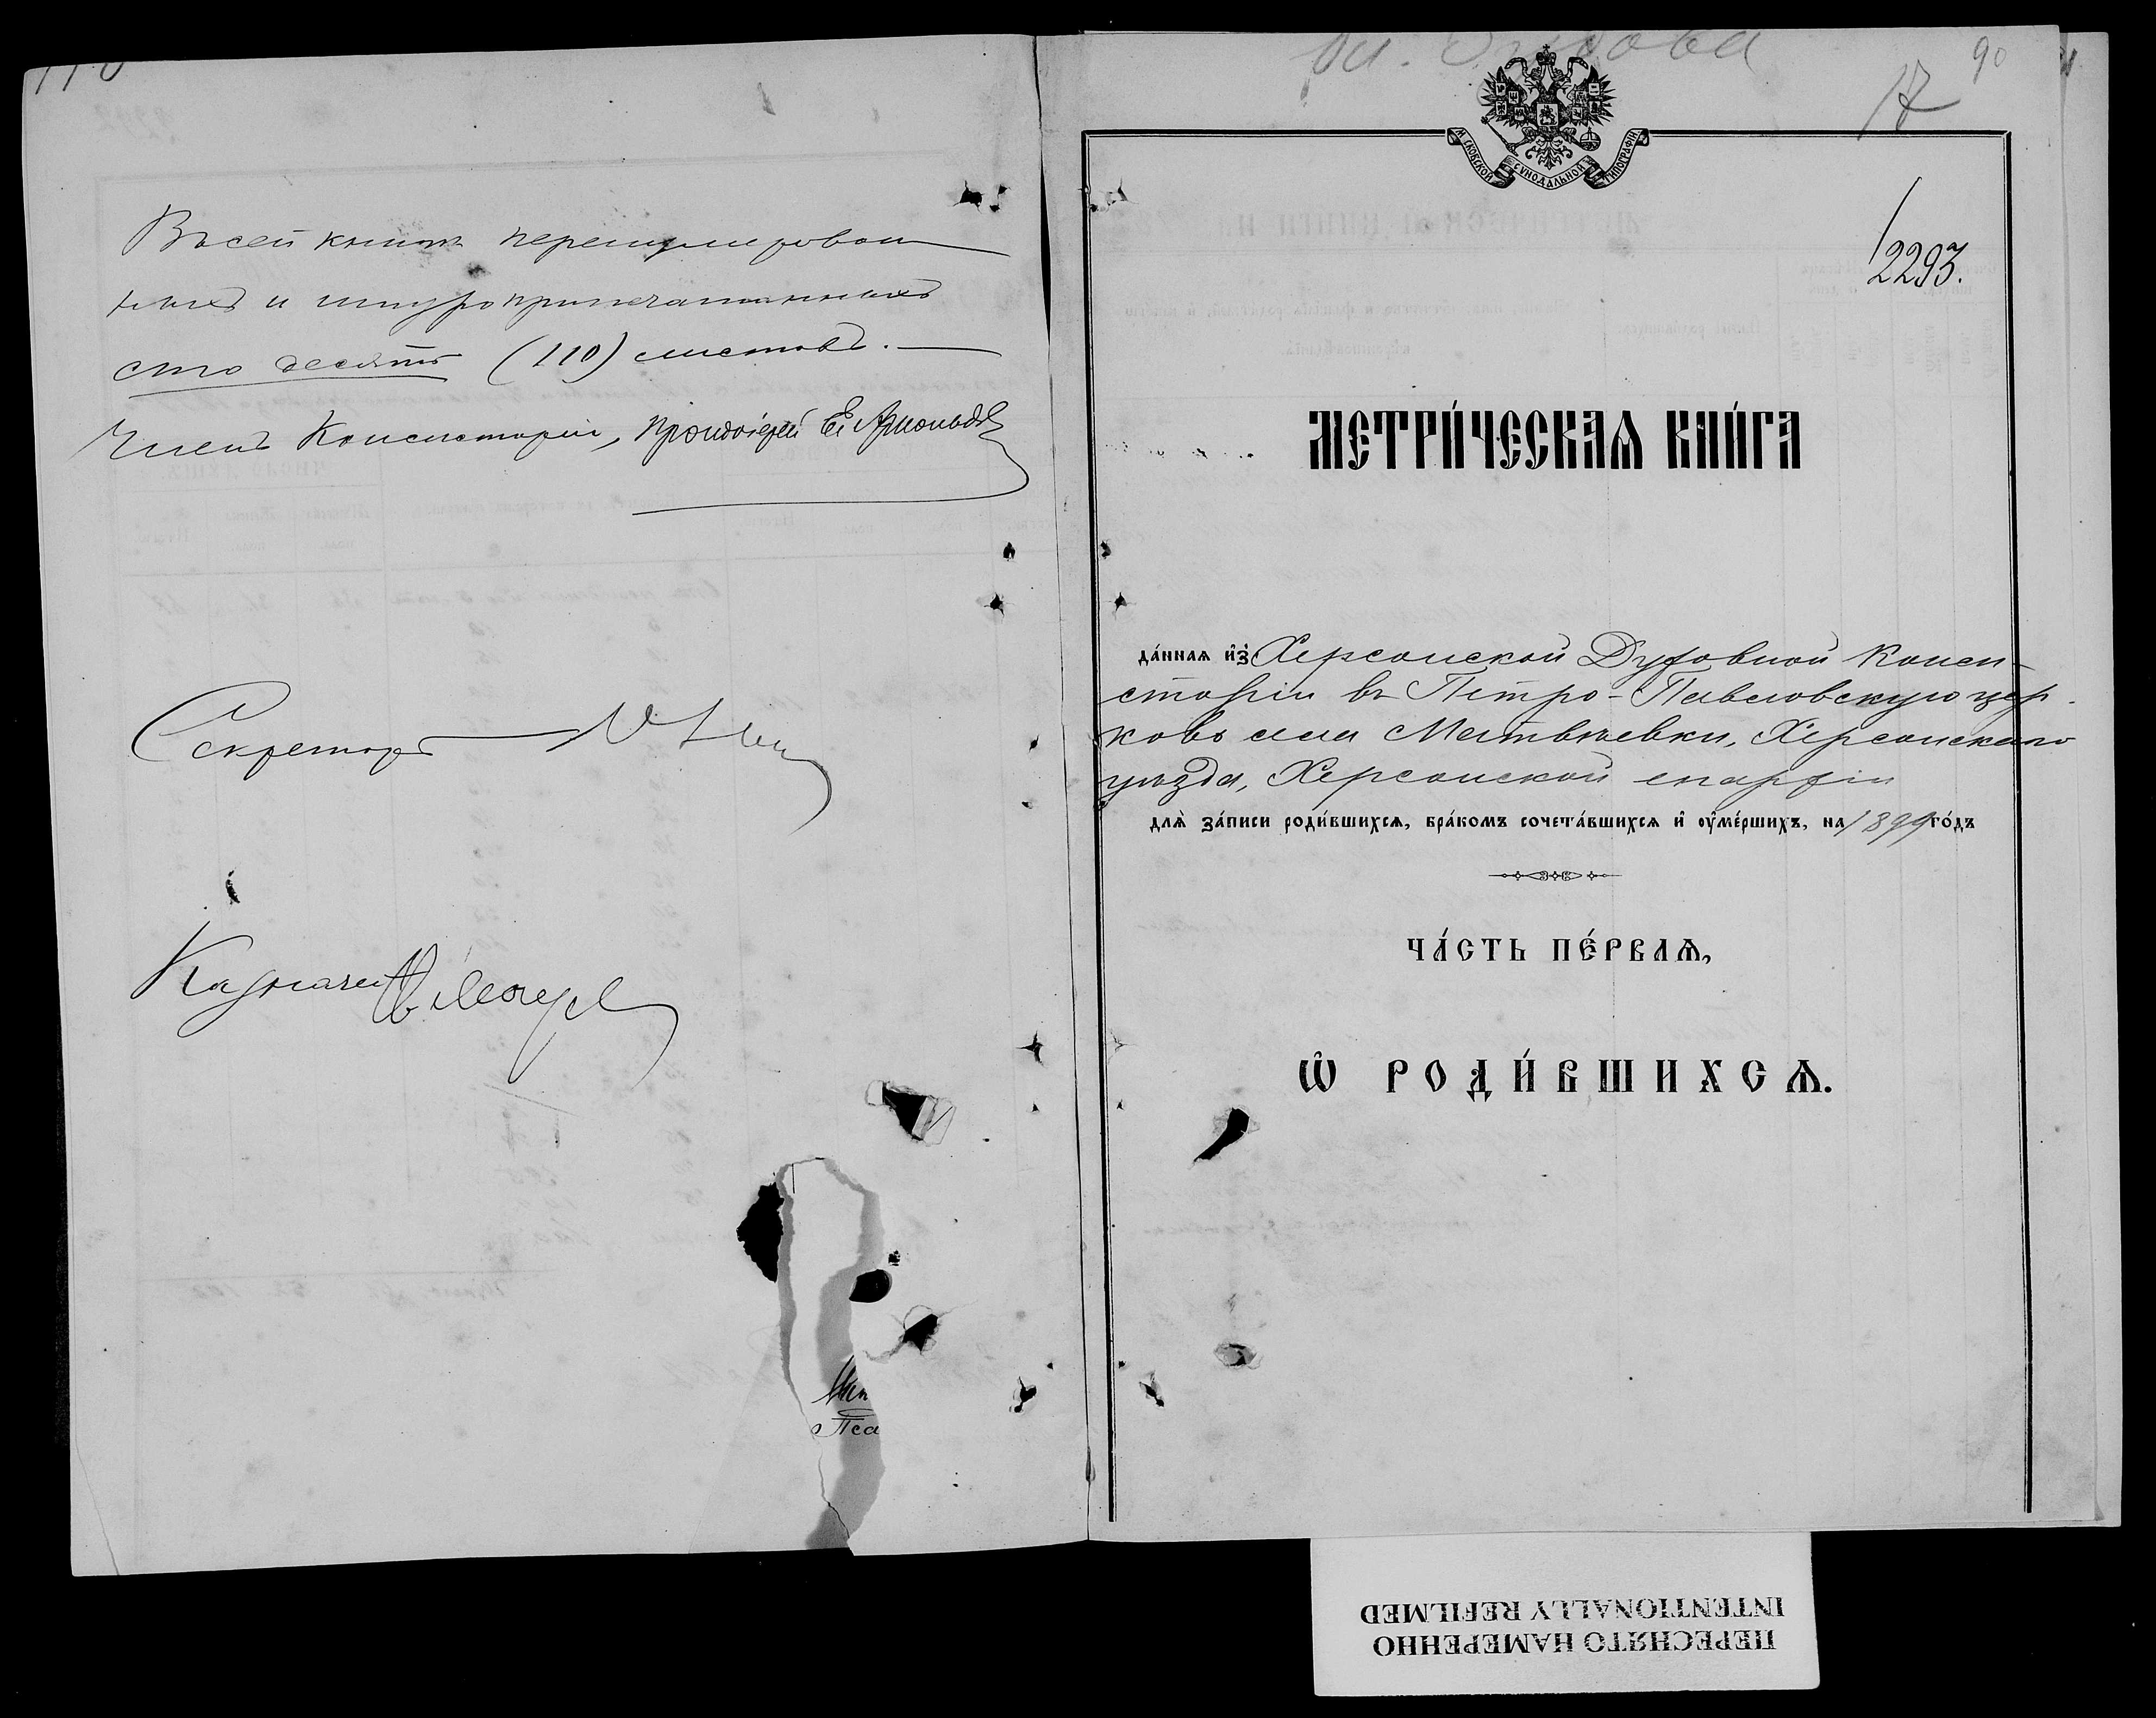 110
Въ сей книгѣ перенумерован
ныхъ и шнуроприпечатанныхъ
сто десять (110) листовъ.
Членъ Консисторіи, Протоіерей
Секретарь
Казначей
Пса
90
17
МОСКОВСКОЙ СѴНОДАЛЬНОЙ ТИПОГРАФІИ
2293.
МЕТРИ́ЧЕСКАѦ КНИ́ГА
да́ннаѧ и҆з̾ Херсонской Духовной Конси-
сторіи въ Петро-Павловскую цер-
ковь села Матвѣевки, Херсонскаго
уѣзда, Херсонской епархіи
длѧ̀ за́писи роди́вшихсѧ, бра́комъ сочета́вшихсѧ и҆ ᲂу҆ме́ршихъ, на 1899 го́дъ
ЧА́СТЬ ПЕ́РВАѦ,
Ѽ РОДИ́ВШИХСѦ.
ПЕРЕСНЯТО НАМЕРЕННО
INTENTIONALLY REFILMED